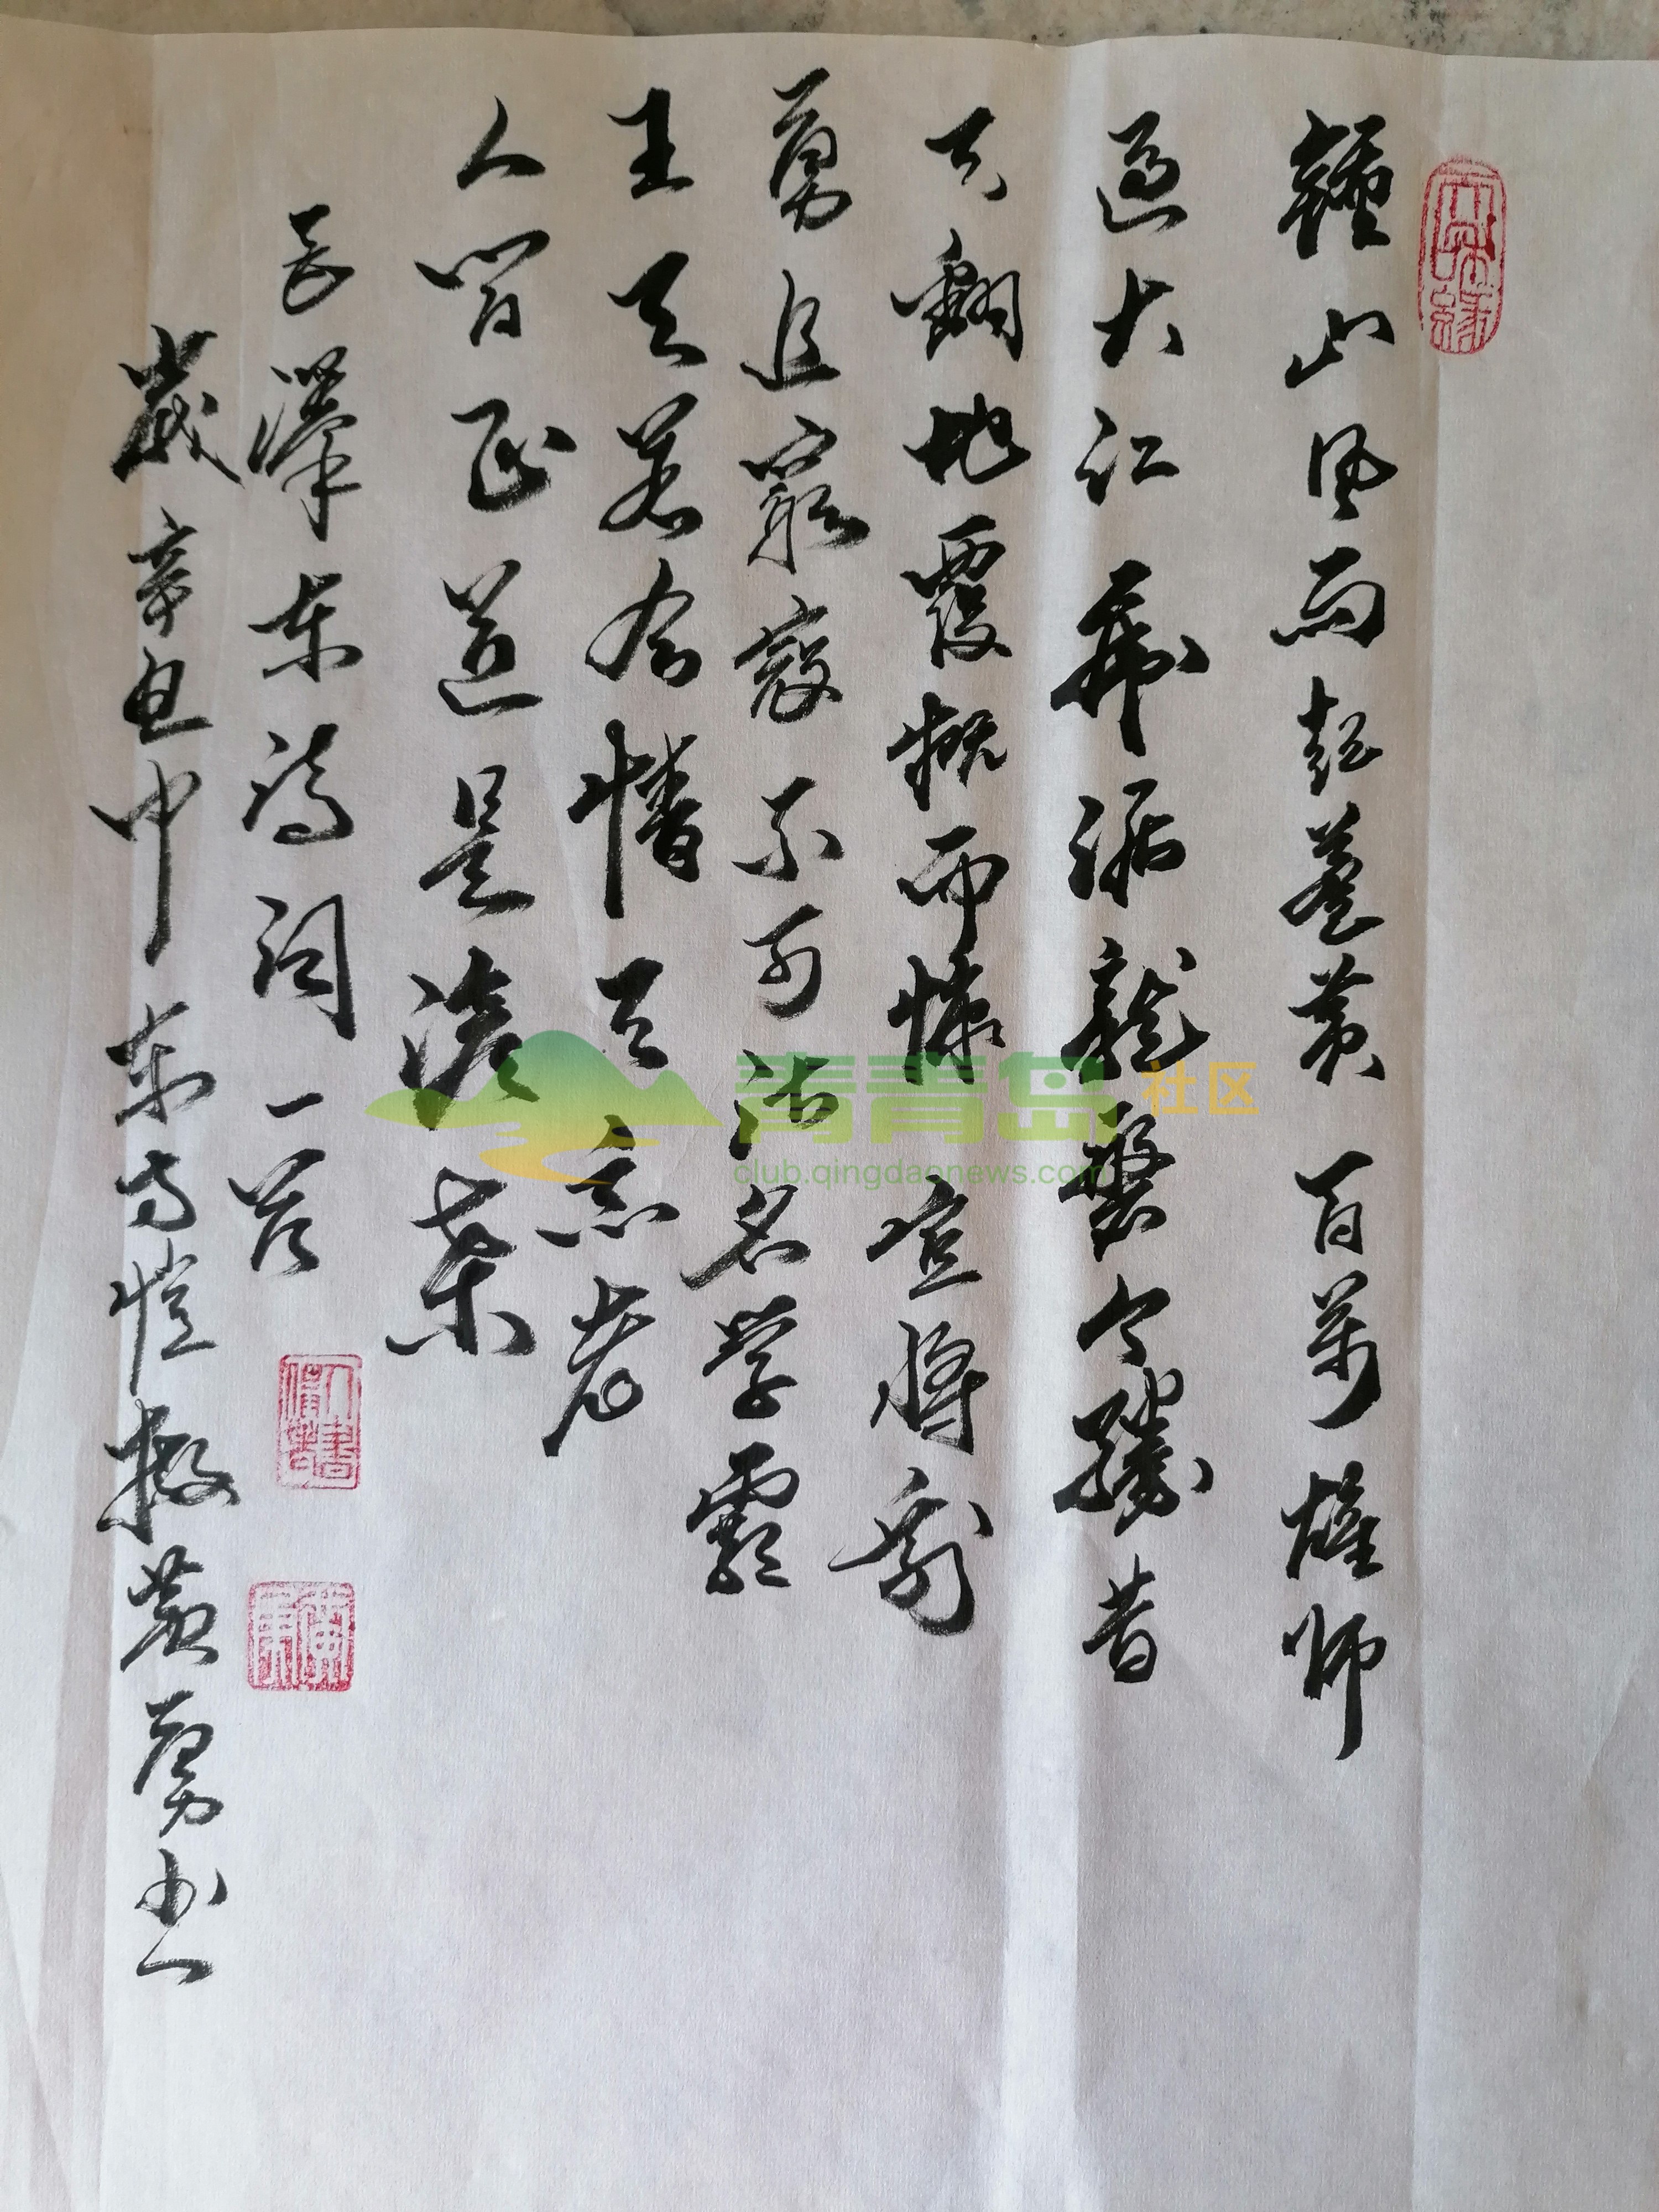 鐘山風雨起蒼黃百萬雄師
過大江虎踞龍盤今勝昔
天翻地覆慨而慷宜將剩
勇追窮寇不可沽名學霸
王天若有情天亦老
人間正道是滄桑
毛澤東詩詞一首
歲辛丑中東方愷撒黃勇书
青青岛社区
club.qingdaonews.com